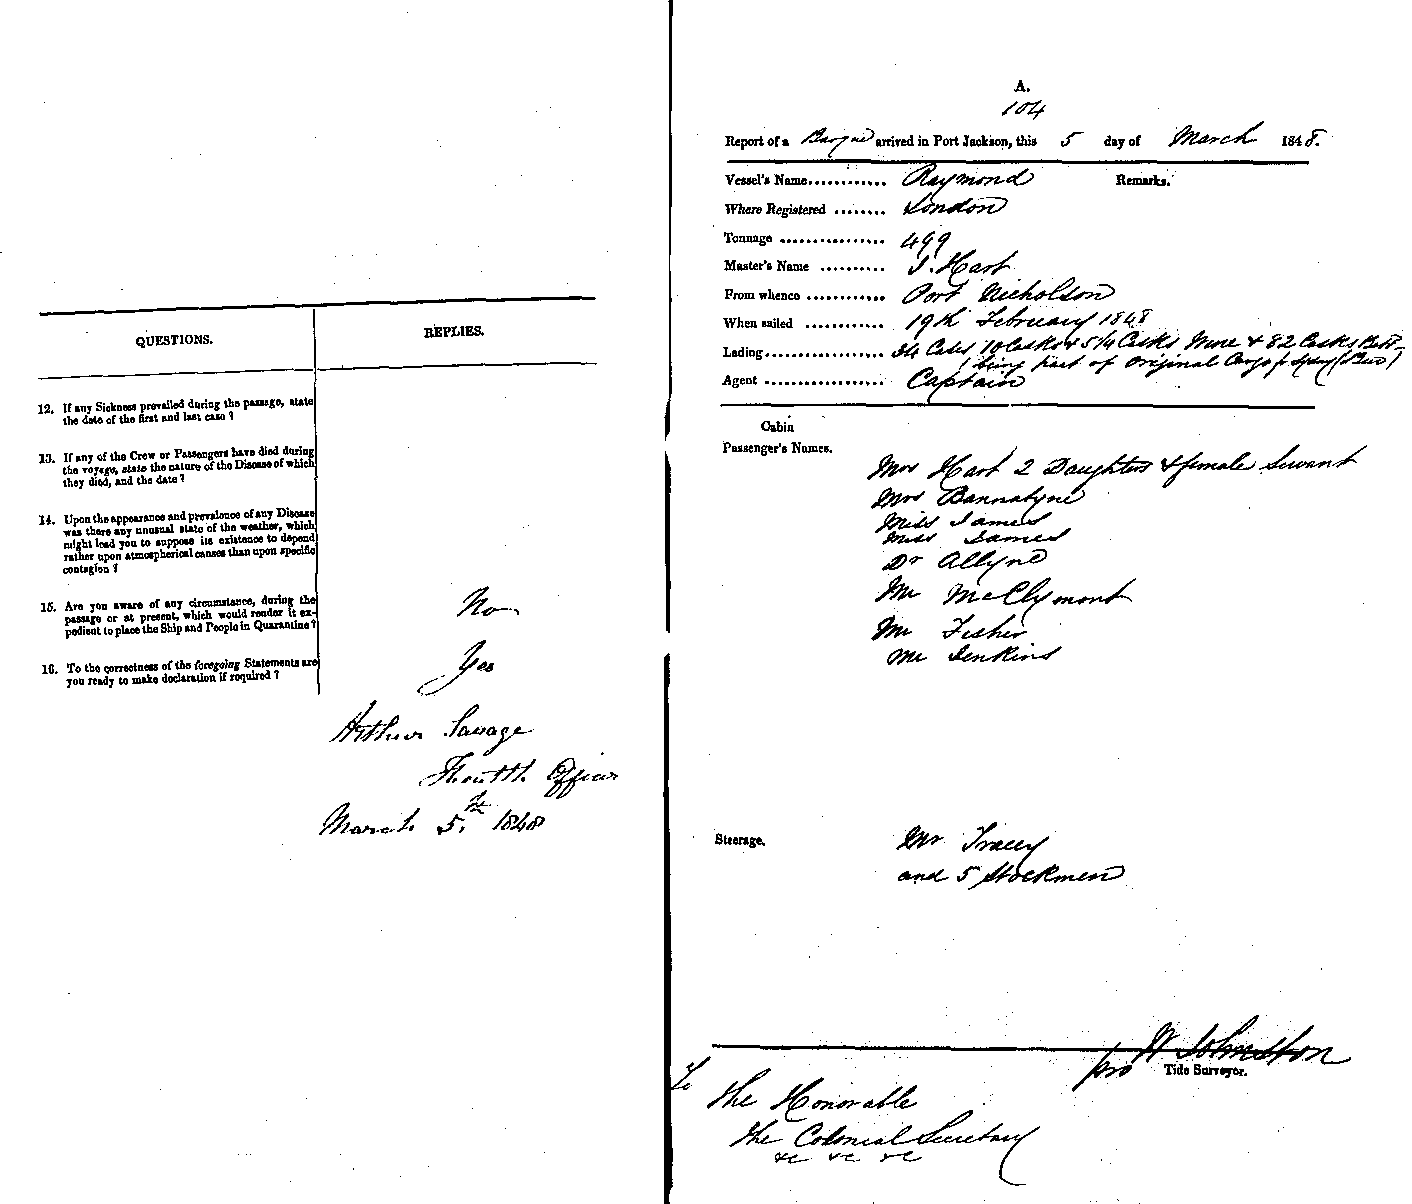 QUESTIONS.
REPLIES.
12. If any Sickness prevailed during the passage, state
the date of the first and last case ?
13. If any of the Crew or Passengers have died during
the voyage, state the nature of the Disease of which
they died, and the date ?
14. Upon the appearance and prevalence of any Disease
was there any unusual state of the weather, which
might lead you to suppose its existence to depend
rather upon atmospherical causes than upon specific
contagion ?
15. Are you aware of any circumstance, during the
passage or at present, which would render it ex-
pedient to place the Ship and People in Quarantine ?
No
16. To the correctness of the foregoing Statements are
you ready to make declaration if required ?
Yes
Arthur Savage
Health Officer
March 5th 1848
A.
104
Report of a Barque arrived in Port Jackson, this 5 day of March 1848.
Vessel's Name............ Raymond
Remarks.
Where Registered ........ London
Tonnage ................ 499
Master's Name .......... J. Hart
From whence ............ Port Nicholson
When sailed ............ 19th February 1848
Lading.................. 34 Cases 10 Casks & 5 1/4 Casks Wine & 82 Casks
(being part of Original Cargo
Agent .................. Captain
Cabin
Passenger's Names.
Mrs Hart 2 Daughters & female Servant
Mrs Bannatyne
Miss James
Miss James
Dr Allyne
Mr McClymont
Mr Fisher
Mr Jenkins
Steerage.
Mr Tracey
and 5 Stockmen
pro W Johnston
Tide Surveyor.
To
The Honorable
The Colonial Secretary
&c &c &c